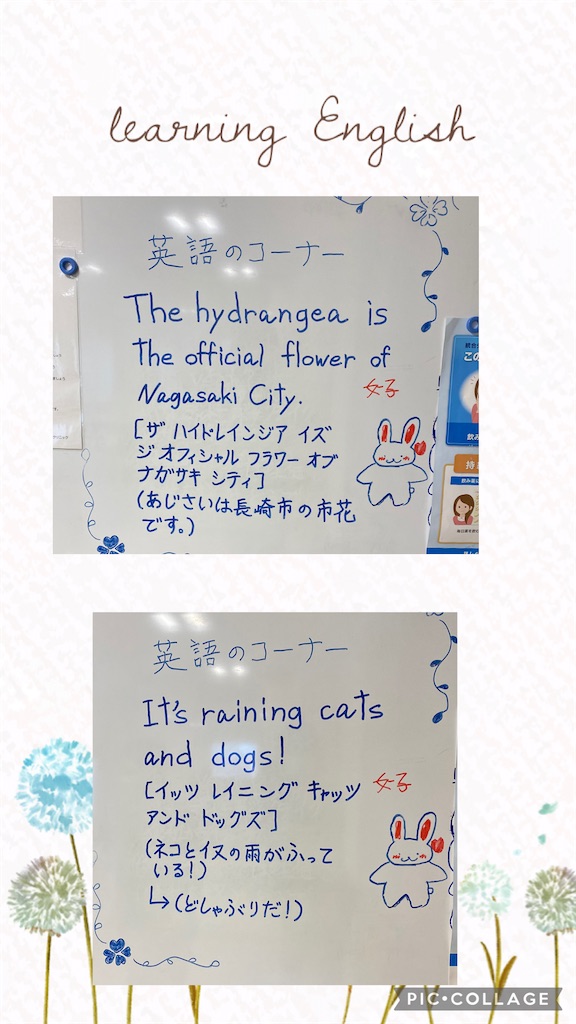 learning English
英語のコーナー
The hydrangea is
the official flower of
Nagasaki City.
女子
[ザ ハイドレインジア イズ
ジ オフィシャル フラワー オブ
ナガサキ シティ]
(あじさいは長崎市の市花
です。)
英語のコーナー
It's raining cats
and dogs!
女子
[イッツ レイニング キャッツ
アンド ドッグズ]
(ネコとイヌの雨がふって
いる!)
↳(どしゃぶりだ!)
PIC•COLLAGE